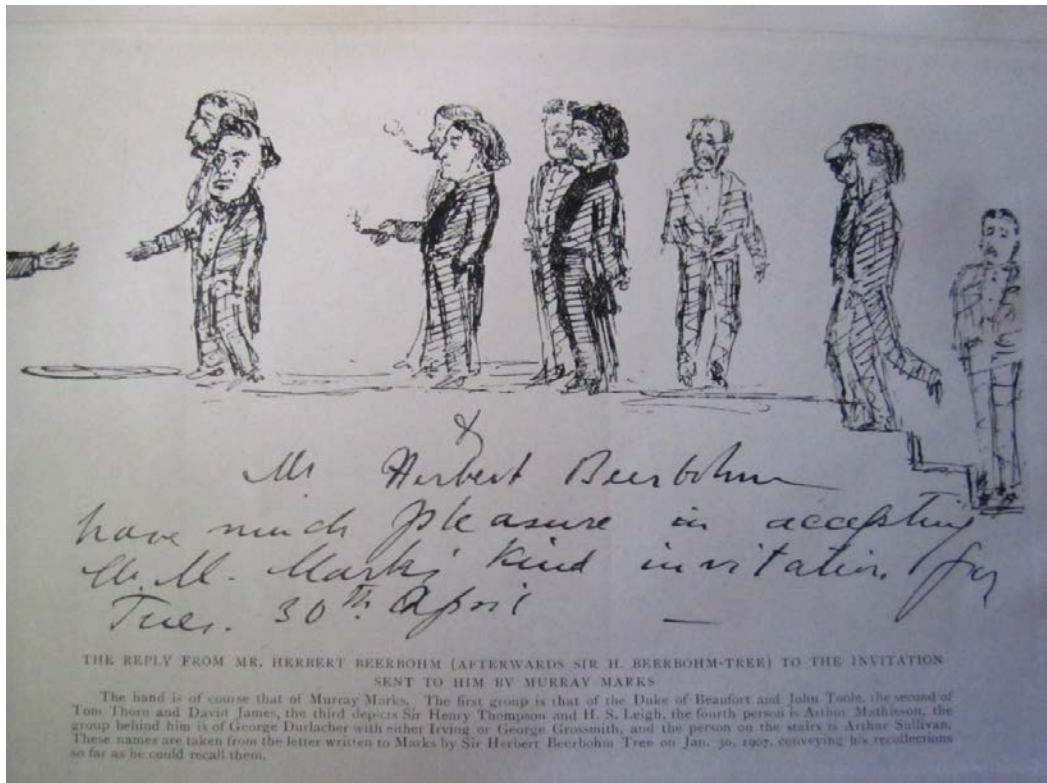 &
Mr Herbert Beerbohm
have much pleasure in accepting
Mr. M. Marks kind invitation for
Tues. 30th April —
THE REPLY FROM MR. HERBERT BEERBOHM (AFTERWARDS SIR H. BEERBOHM-TREE) TO THE INVITATION
SENT TO HIM BY MURRAY MARKS
The hand is of course that of Murray Marks. The first group is that of the Duke of Beaufort and John Toole, the second of
Tom Thorn and David James, the third depicts Sir Henry Thompson and H. S. Leigh, the fourth person is Arthur Mathisson, the
group behind him is of George Durlacher with either Irving or George Grossmith, and the person on the stairs is Arthur Sullivan.
These names are taken from the letter written to Marks by Sir Herbert Beerbohm Tree on Jan. 30, 1907, conveying his recollections
so far as he could recall them.